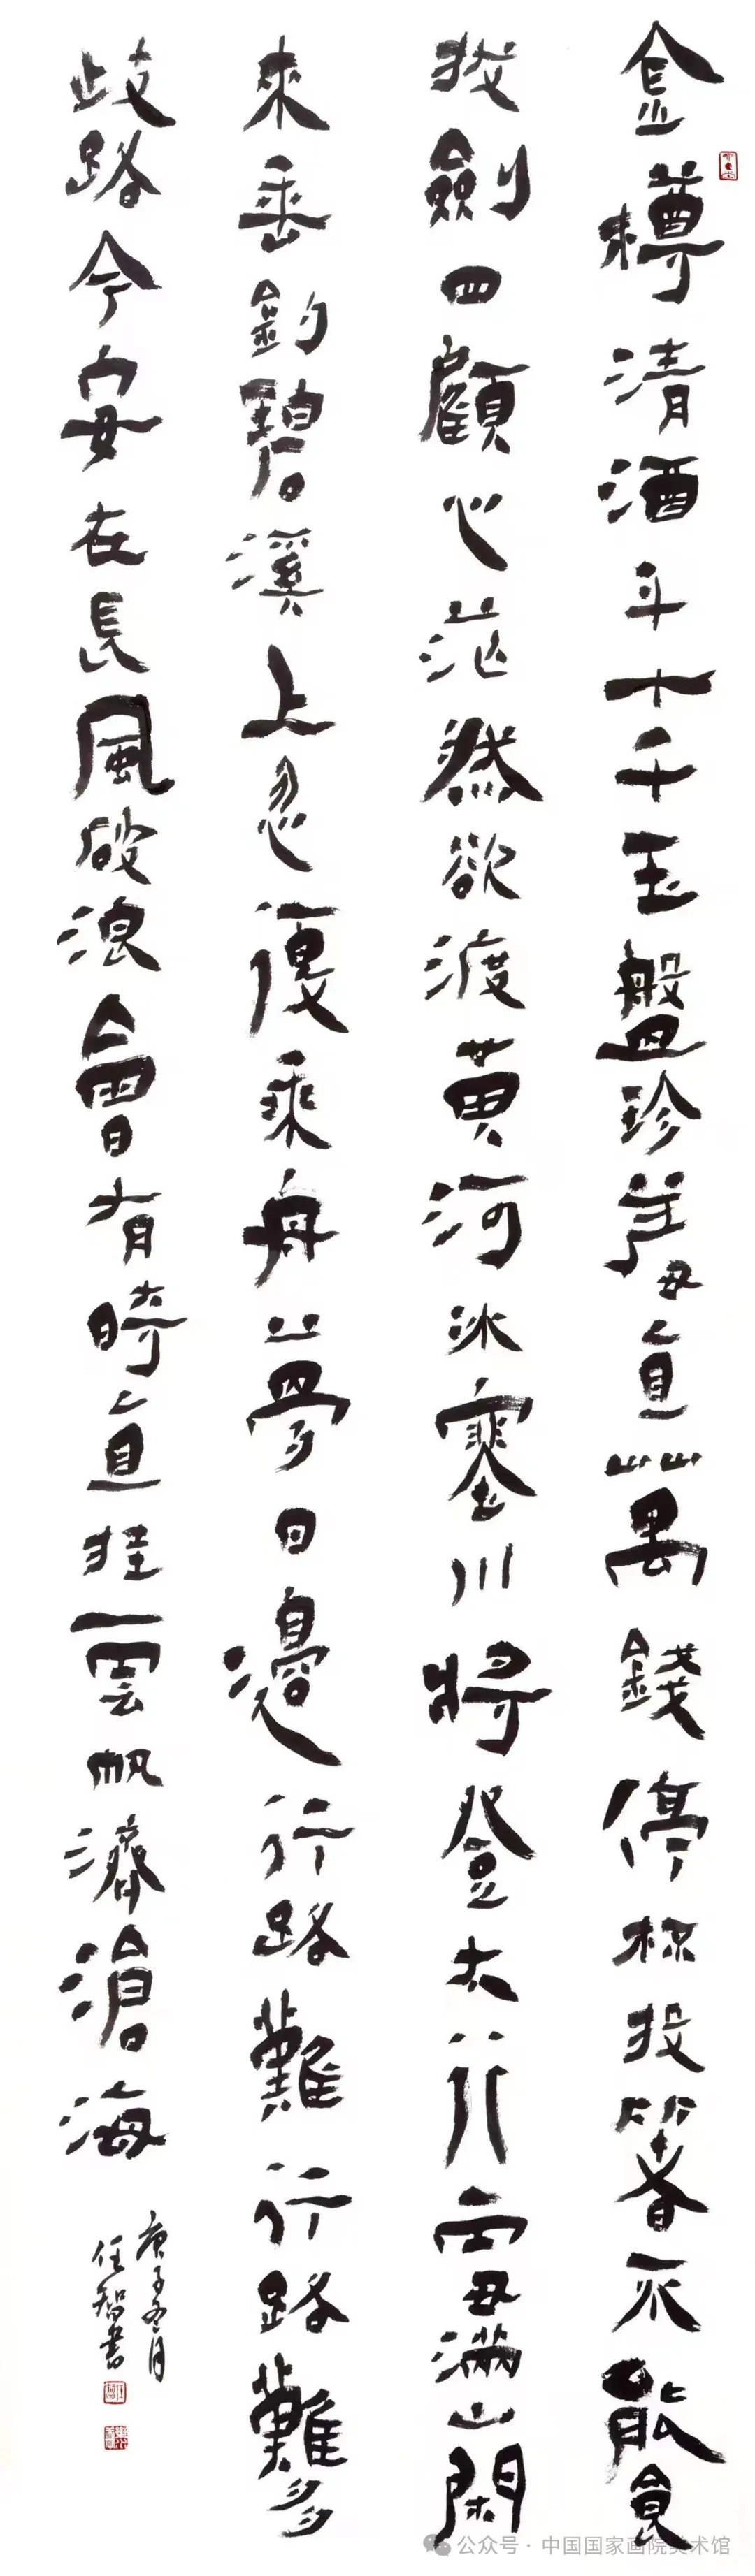 金樽清酒斗十千玉盤珍羞直萬錢停杯投箸不能食
拔劍四顧心茫然欲渡黃河冰塞川將登太行雪滿山閑
來垂釣碧溪上忽復乘舟夢日邊行路難行路難多
歧路今安在長風破浪會有時直挂雲帆濟滄海
庚子冬月
任智書
公众号 · 中国国家画院美术馆